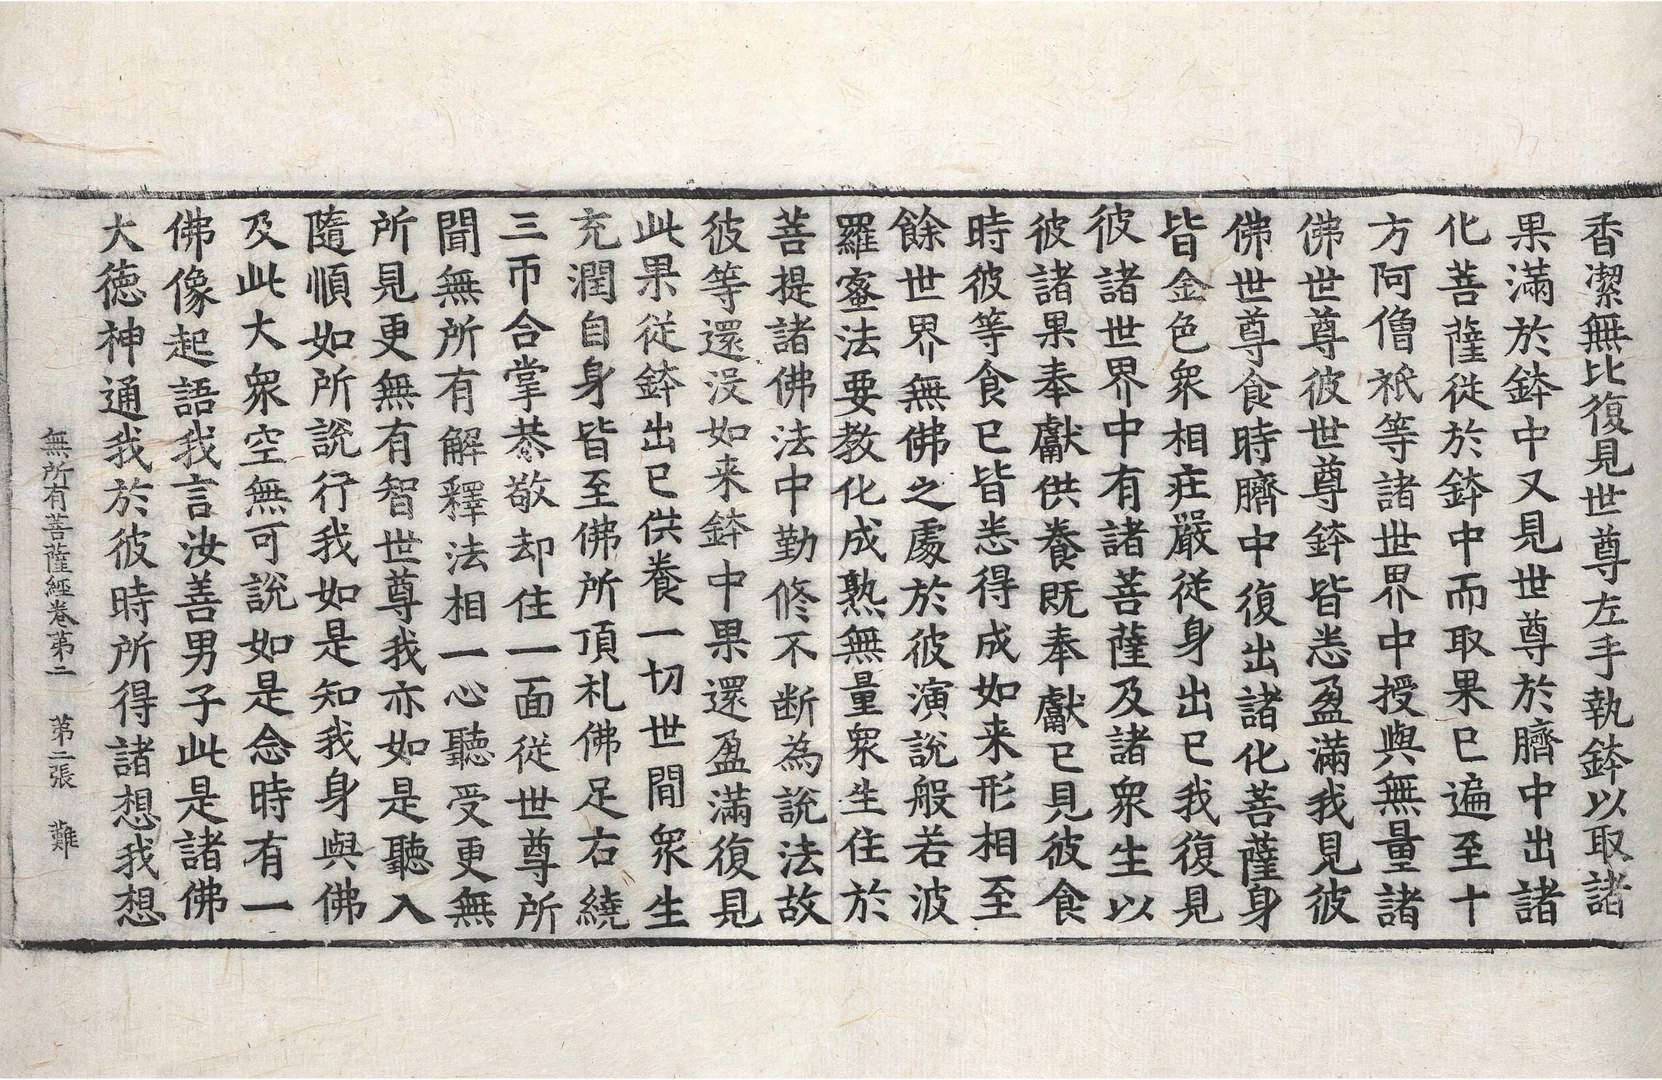 香潔無比復見世尊左手執鉢以取諸
果滿於鉢中又見世尊於臍中出諸
化菩薩從於鉢中而取果已遍至十
方阿僧祇等諸世界中授與無量諸
佛世尊彼世尊鉢皆悉盈滿我見彼
佛世尊食時臍中復出諸化菩薩身
皆金色衆相疘嚴從身出已我復見
彼諸世界中有諸菩薩及諸衆生以
彼諸果奉獻供養既奉獻已見彼食
時彼等食已皆悉得成如来形相至
餘世界無佛之處於彼演說般若波
羅蜜法要教化成熟無量衆生住於
菩提諸佛法中勤修不断為說法故
彼等還没如来鉢中果還盈滿復見
此果從鉢出已供養一切世間衆生
充潤自身皆至佛所頂礼佛足右繞
三帀合掌恭敬却住一面從世尊所
聞無所有解釋法相一心聽受更無
所見更無有智世尊我亦如是聽入
隨順如所說行我如是知我身與佛
及此大衆空無可說如是念時有一
佛像起語我言汝善男子此是諸佛
大德神通我於彼時所得諸想我想
無所有菩薩經卷第二 第二張 難